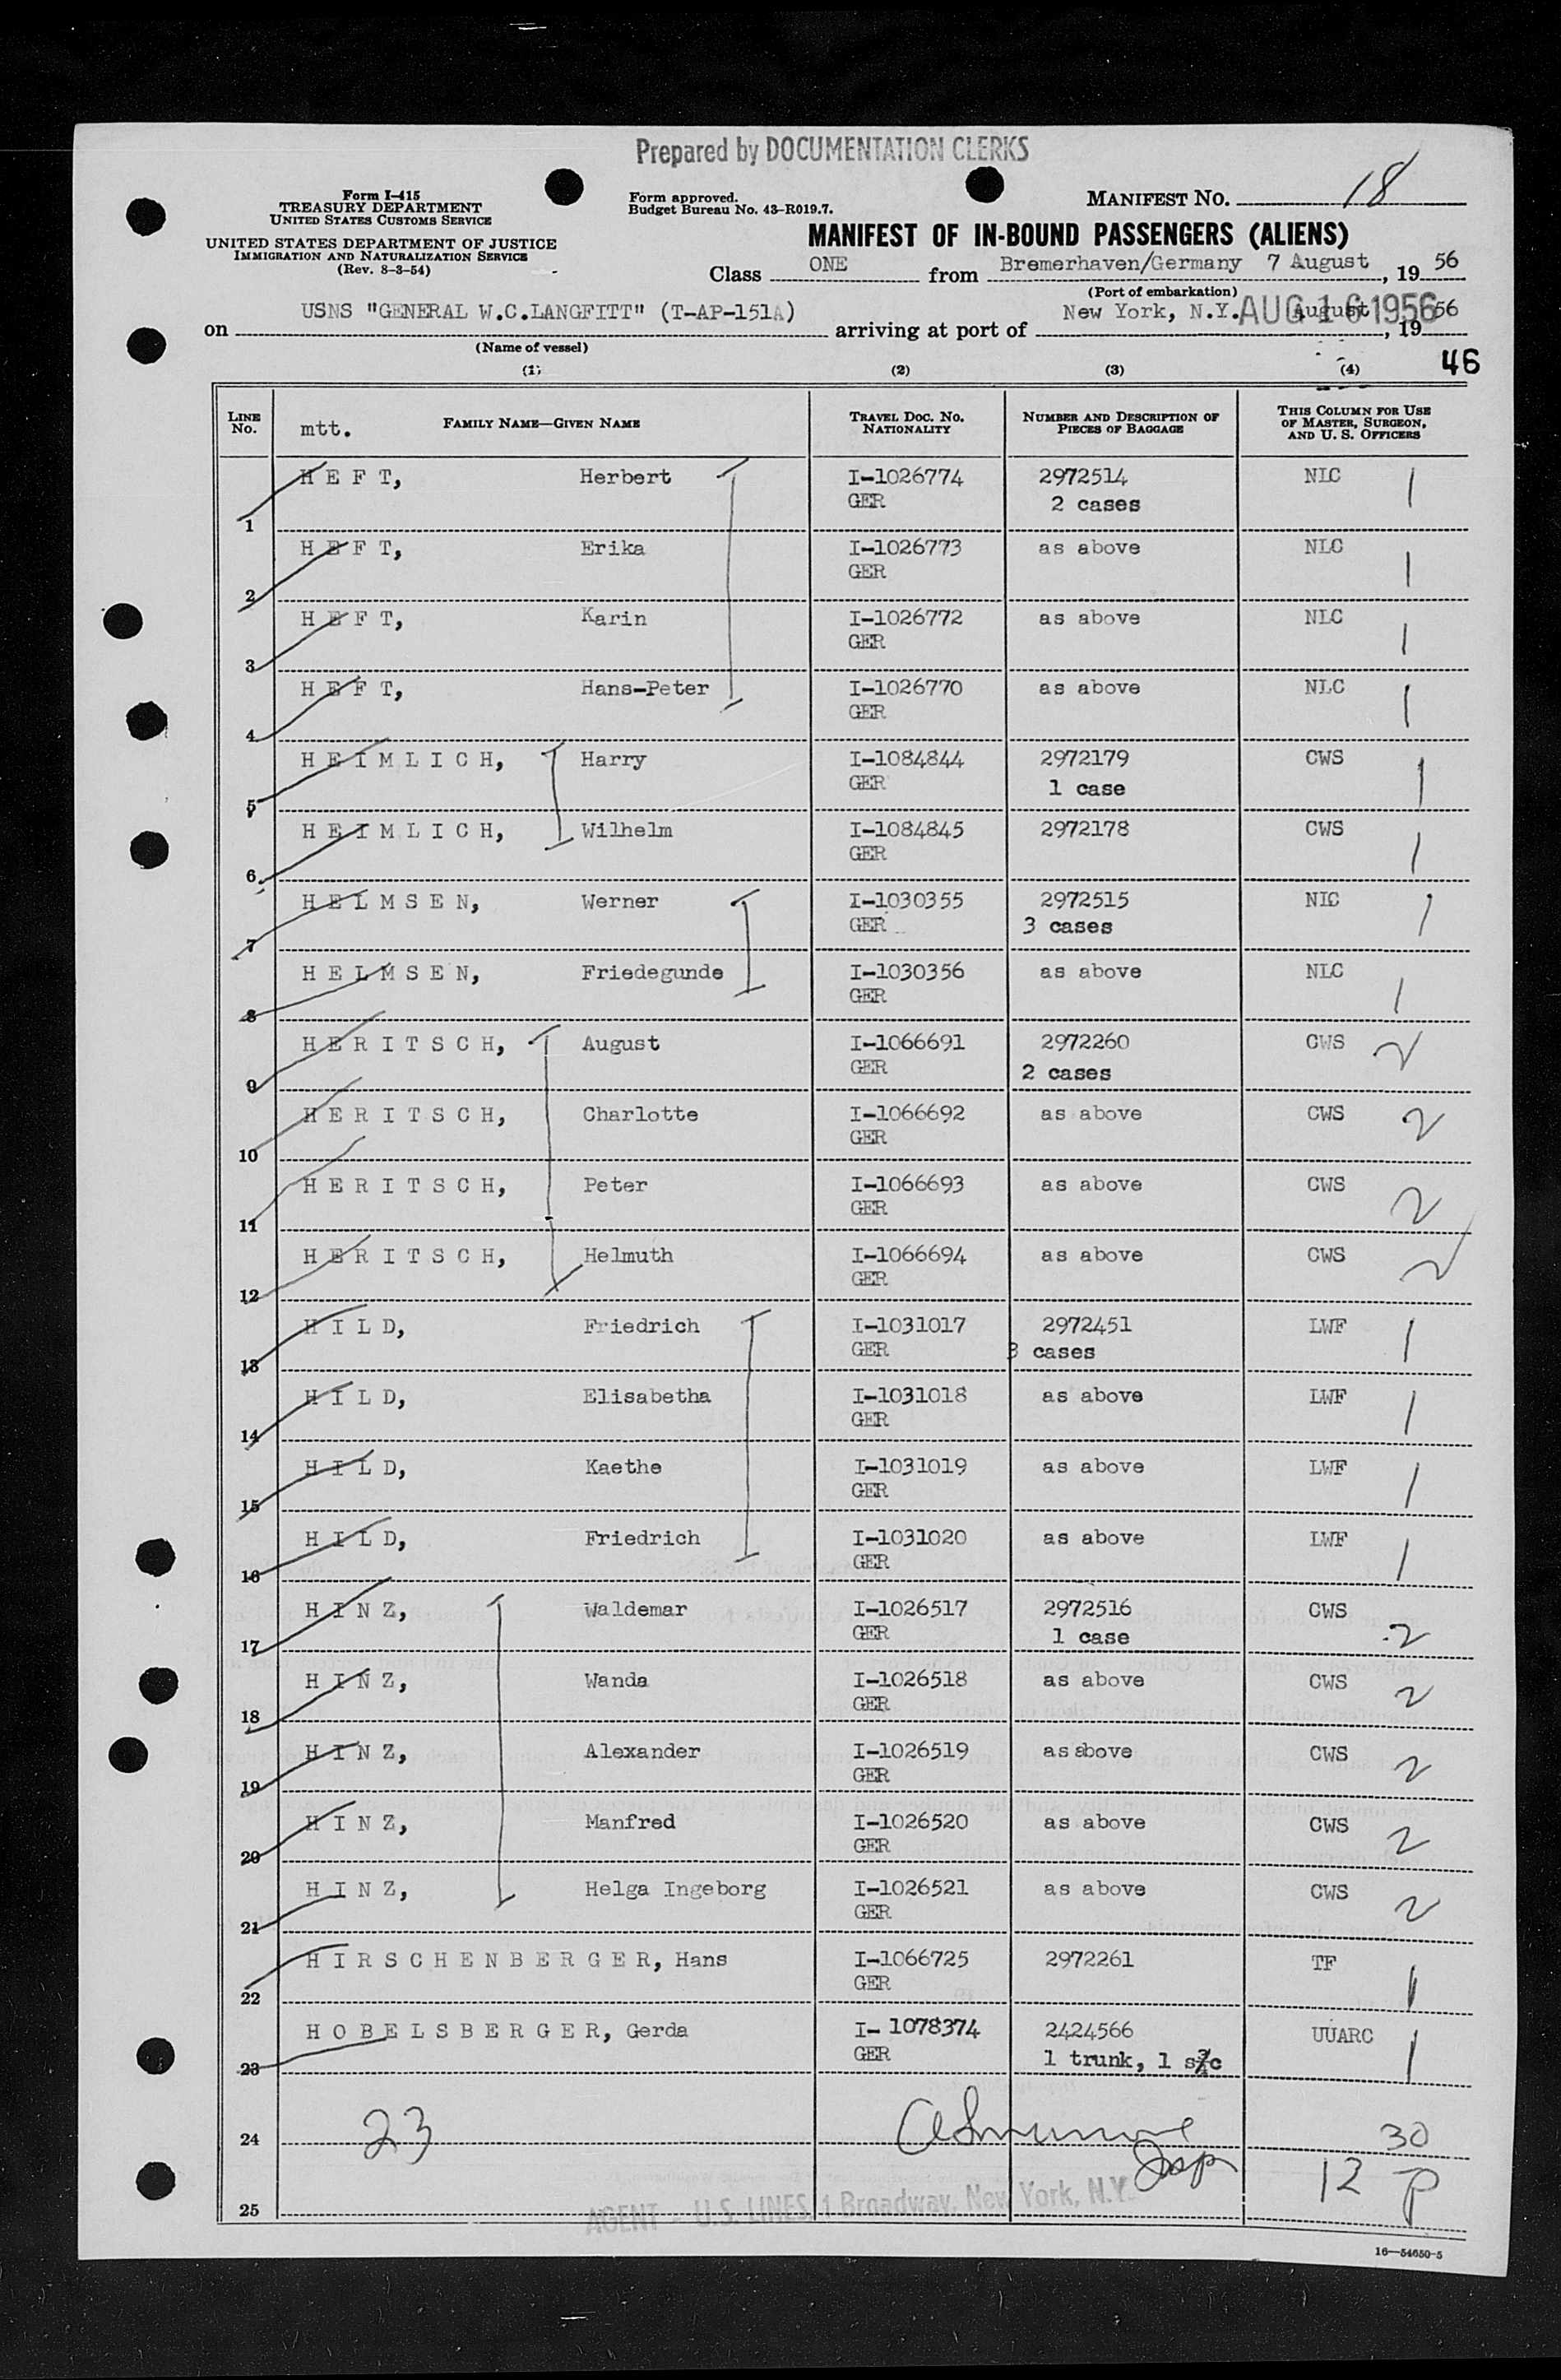 Prepared by DOCUMENTATION CLERKS
Form I-415
TREASURY DEPARTMENT
UNITED STATES CUSTOMS SERVICE
UNITED STATES DEPARTMENT OF JUSTICE
IMMIGRATION AND NATURALIZATION SERVICE
(Rev. 8-3-54)
Form approved.
Budget Bureau No. 43-R019.7.
MANIFEST NO. 18
MANIFEST OF IN-BOUND PASSENGERS (ALIENS)
Class ONE from Bremerhaven/Germany 7 August, 19 56
(Port of embarkation)
on USNS "GENERAL W.C.LANGFITT" (T-AP-151A) arriving at port of New York, N.Y. August, 19 56
AUG 16 1956
(Name of vessel)
46
(1) (2) (3) (4)
LINE NO. mtt. FAMILY NAME—GIVEN NAME TRAVEL DOC. NO. NATIONALITY NUMBER AND DESCRIPTION OF PIECES OF BAGGAGE THIS COLUMN FOR USE OF MASTER, SURGEON, AND U. S. OFFICERS
1 H E F T, Herbert I-1026774 GER 2972514 2 cases NLC 1
2 H E F T, Erika I-1026773 GER as above NLC 1
3 H E F T, Karin I-1026772 GER as above NLC 1
4 H E F T, Hans-Peter I-1026770 GER as above NLC 1
5 H E I M L I C H, Harry I-1084844 GER 2972179 1 case CWS 1
6 H E I M L I C H, Wilhelm I-1084845 GER 2972178 CWS 1
7 H E L M S E N, Werner I-1030355 GER 2972515 3 cases NLC 1
8 H E L M S E N, Friedegunde I-1030356 GER as above NLC 1
9 H E R I T S C H, August I-1066691 GER 2972260 2 cases CWS 2
10 H E R I T S C H, Charlotte I-1066692 GER as above CWS 2
11 H E R I T S C H, Peter I-1066693 GER as above CWS 2
12 H E R I T S C H, Helmuth I-1066694 GER as above CWS 2
13 H I L D, Friedrich I-1031017 GER 2972451 3 cases LWF 1
14 H I L D, Elisabetha I-1031018 GER as above LWF 1
15 H I L D, Kaethe I-1031019 GER as above LWF 1
16 H I L D, Friedrich I-1031020 GER as above LWF 1
17 H I N Z, Waldemar I-1026517 GER 2972516 1 case CWS 2
18 H I N Z, Wanda I-1026518 GER as above CWS 2
19 H I N Z, Alexander I-1026519 GER as above CWS 2
20 H I N Z, Manfred I-1026520 GER as above CWS 2
21 H I N Z, Helga Ingeborg I-1026521 GER as above CWS 2
22 H I R S C H E N B E R G E R, Hans I-1066725 GER 2972261 TF 1
23 H O B E L S B E R G E R, Gerda I- 1078374 GER 2424566 1 trunk, 1 s/c UUARC 1
24 23 30
Insp
12 P
25
AGENT - U.S. LINES, 1 Broadway, New York, N.Y.
16—54650-5